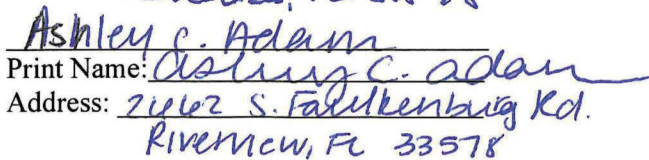 Ashley C. Adam
Print Name: Ashley C. Adam
Address: 2662 S. Faulkenburg Rd.
Riverview, FL 33578